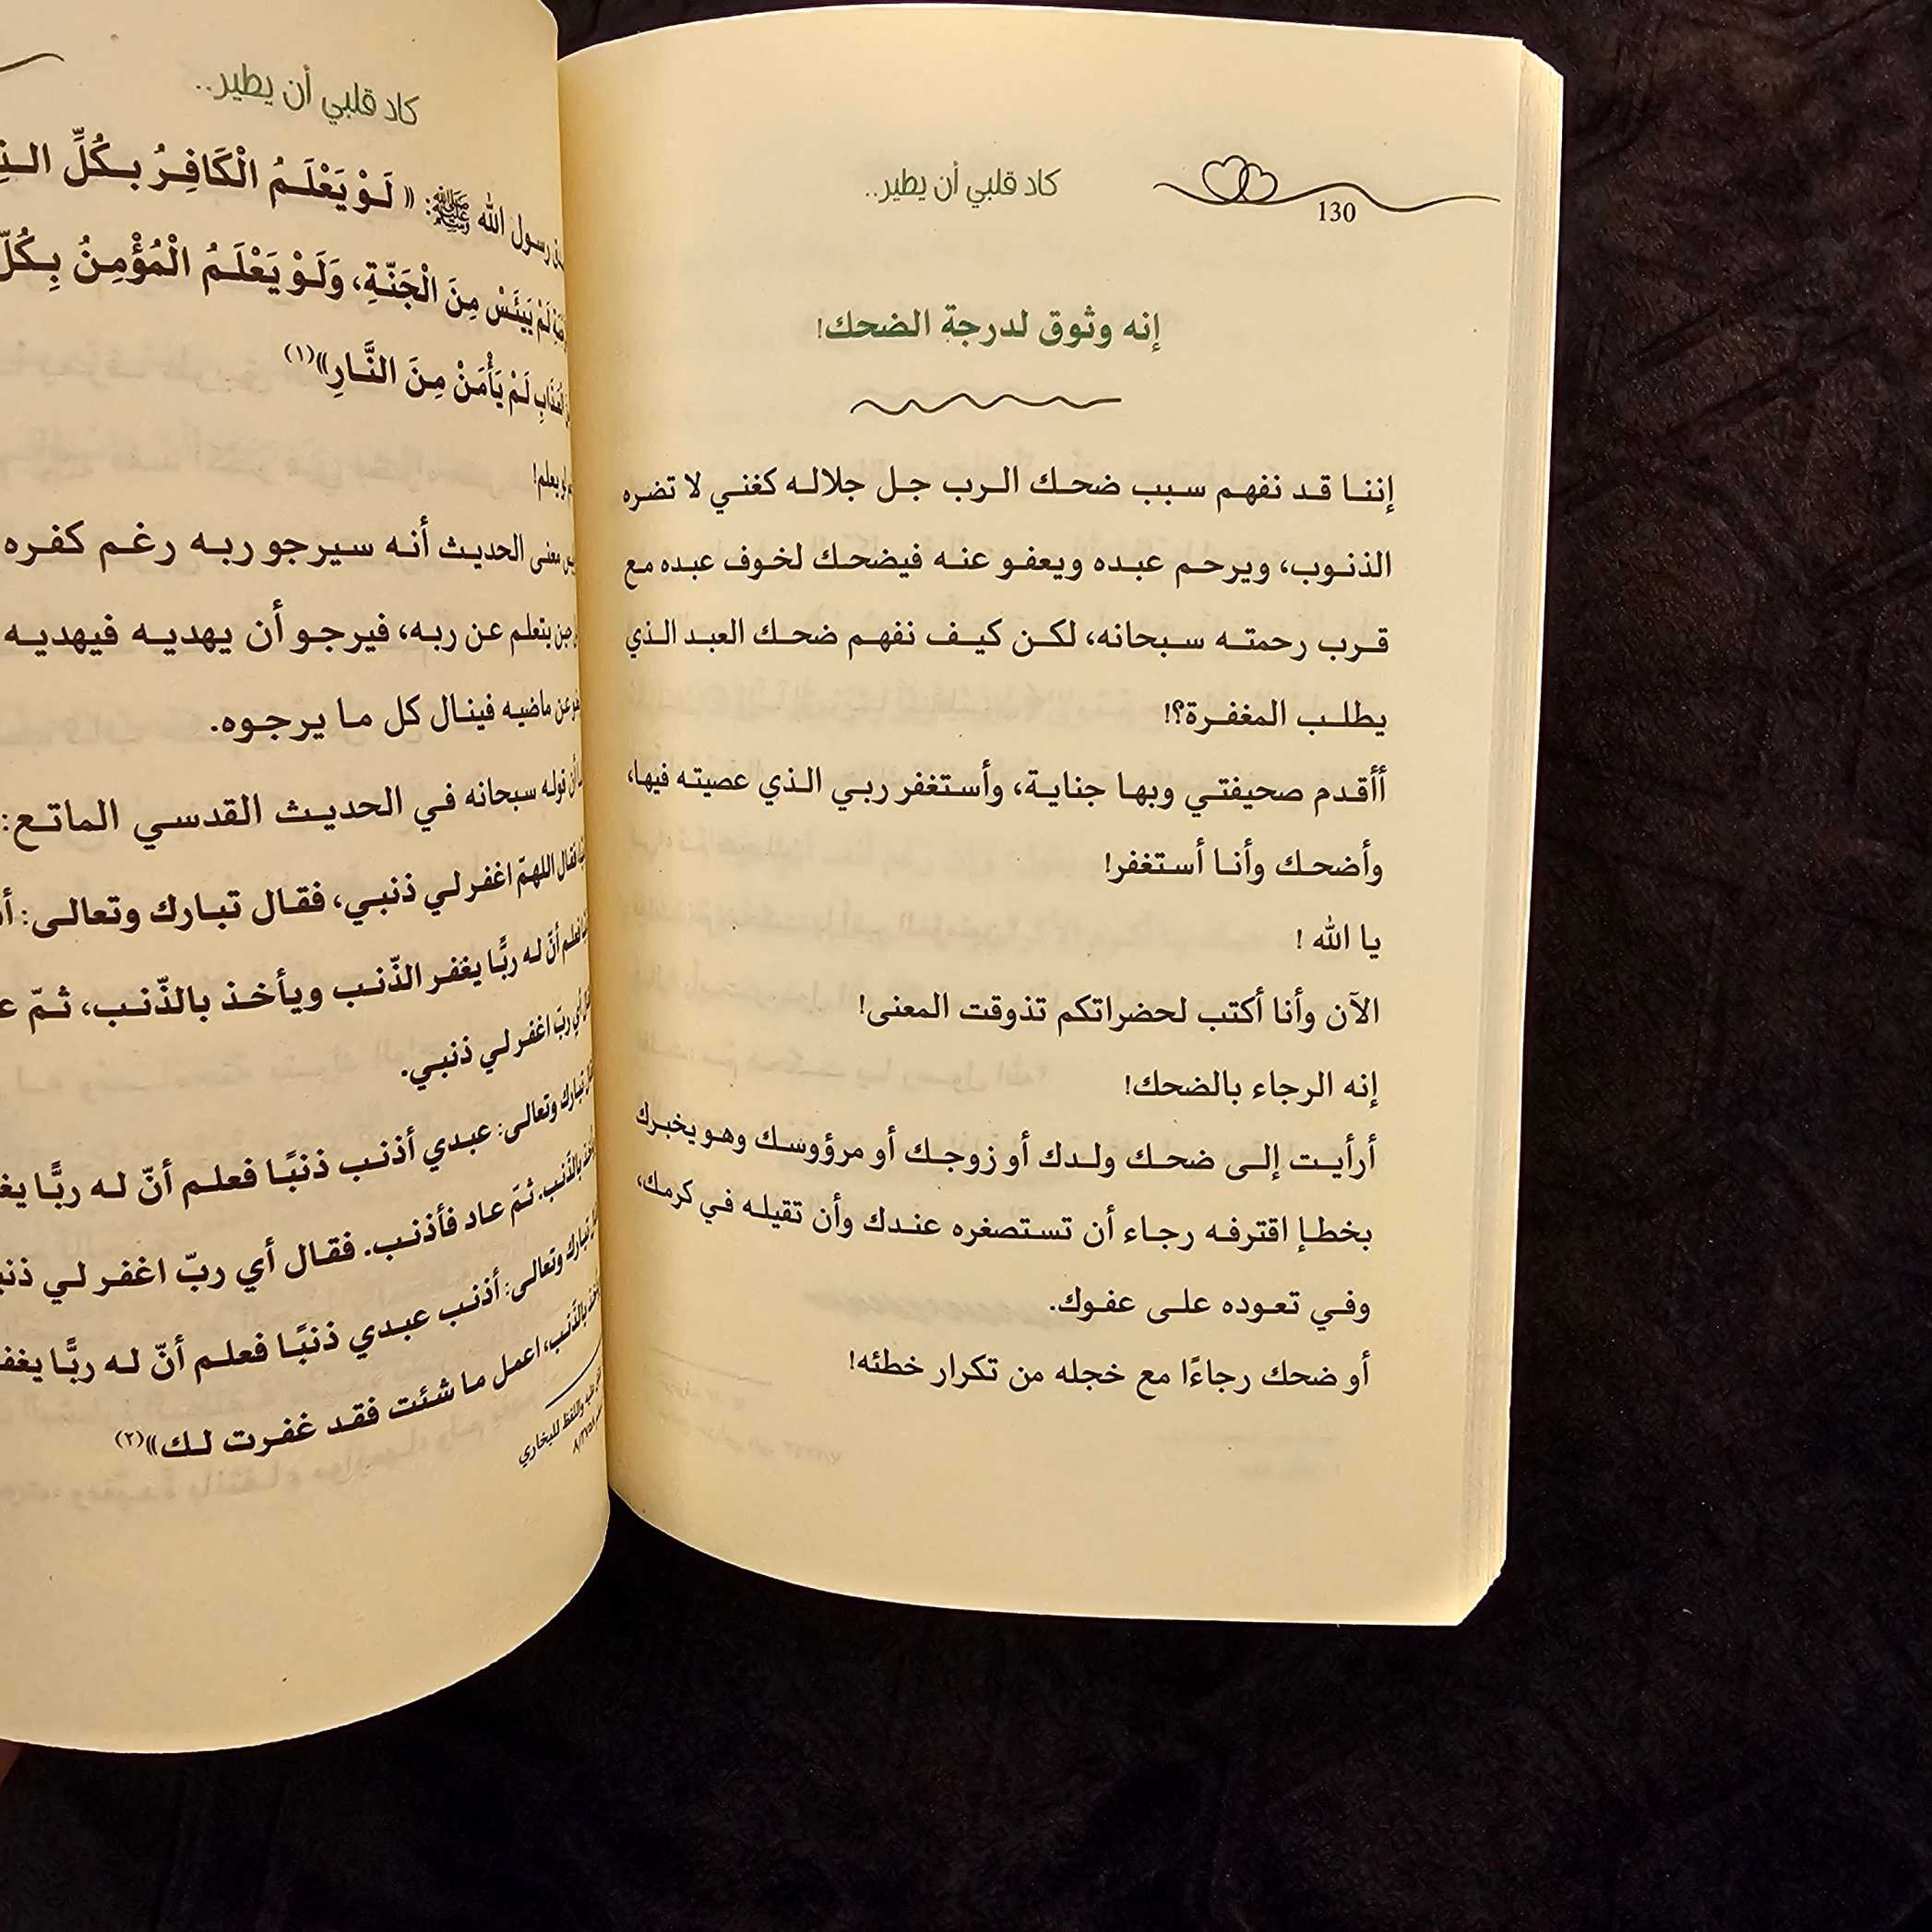 130
كاد قلبي أن يطير..
إنه وثوق لدرجة الضحك!
إننا قد نفهم سبب ضحك الرب جل جلاله كغني لا تضره
الذنوب، ويرحم عبده ويعفو عنه فيضحك لخوف عبده مع
قرب رحمته سبحانه، لكن كيف نفهم ضحك العبد الذي
يطلب المغفرة؟!
أأقدم صحيفتي وبها جناية، وأستغفر ربي الذي عصيته فيها،
وأضحك وأنا أستغفر!
يا الله !
الآن وأنا أكتب لحضراتكم تذوقت المعنى!
إنه الرجاء بالضحك!
أرأيت إلى ضحك ولدك أو زوجك أو مرؤوسك وهو يخبرك
بخطإ اقترفه رجاء أن تستصغره عندك وأن تقيله في كرمك،
وفي تعوده على عفوك.
أو ضحك رجاءًا مع خجله من تكرار خطئه!
كاد قلبي أن يطير..
رسول الله ﷺ: « لَوْ يَعْلَمُ الْكَافِرُ بِكُلِّ
لَمْ يَيْئَسْ مِنَ الْجَنَّةِ، وَلَوْ يَعْلَمُ الْمُؤْمِنُ بِكُلِّ
الْعَذَابِ لَمْ يَأْمَنْ مِنَ النَّارِ»(١)
يعلم!
معنى الحديث أنه سيرجو ربه رغم كفره
يتعلم عن ربه، فيرجو أن يهديه فيهديه
عن ماضيه فينال كل ما يرجوه.
قوله سبحانه في الحديث القدسي الماتع:
فقال اللهمّ اغفر لي ذنبي، فقال تبارك وتعالى:
فعلم أنّ له ربًّا يغفر الذّنب ويأخذ بالذّنب، ثمّ
أي ربّ اغفر لي ذنبي.
تبارك وتعالى: عبدي أذنب ذنبًا فعلم أنّ له ربًّا
بالذّنب. ثمّ عاد فأذنب. فقال أي ربّ اغفر لي
تبارك وتعالى: أذنب عبدي ذنبًا فعلم أنّ له ربًّا
بالذّنب، اعمل ما شئت فقد غفرت لك»(٢)
عليه واللفظ للبخاري